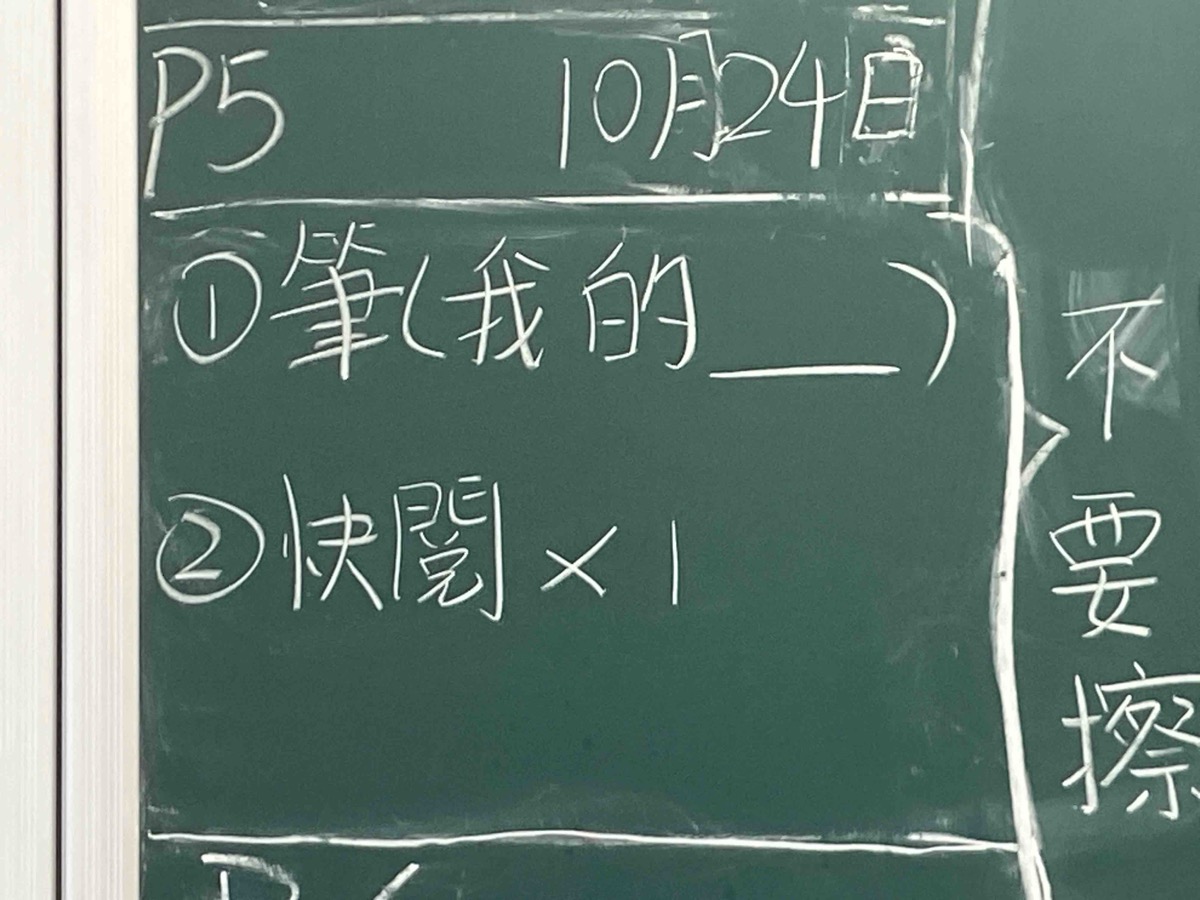 P5 10月24日
①筆(我的___)
②快閱×1
不要擦